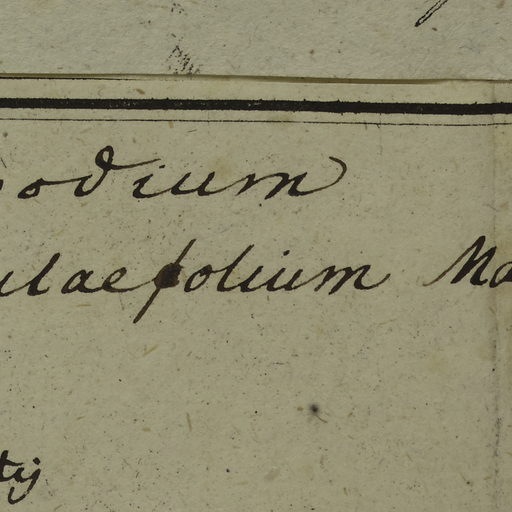 odium
ulaefolium Ma
tij